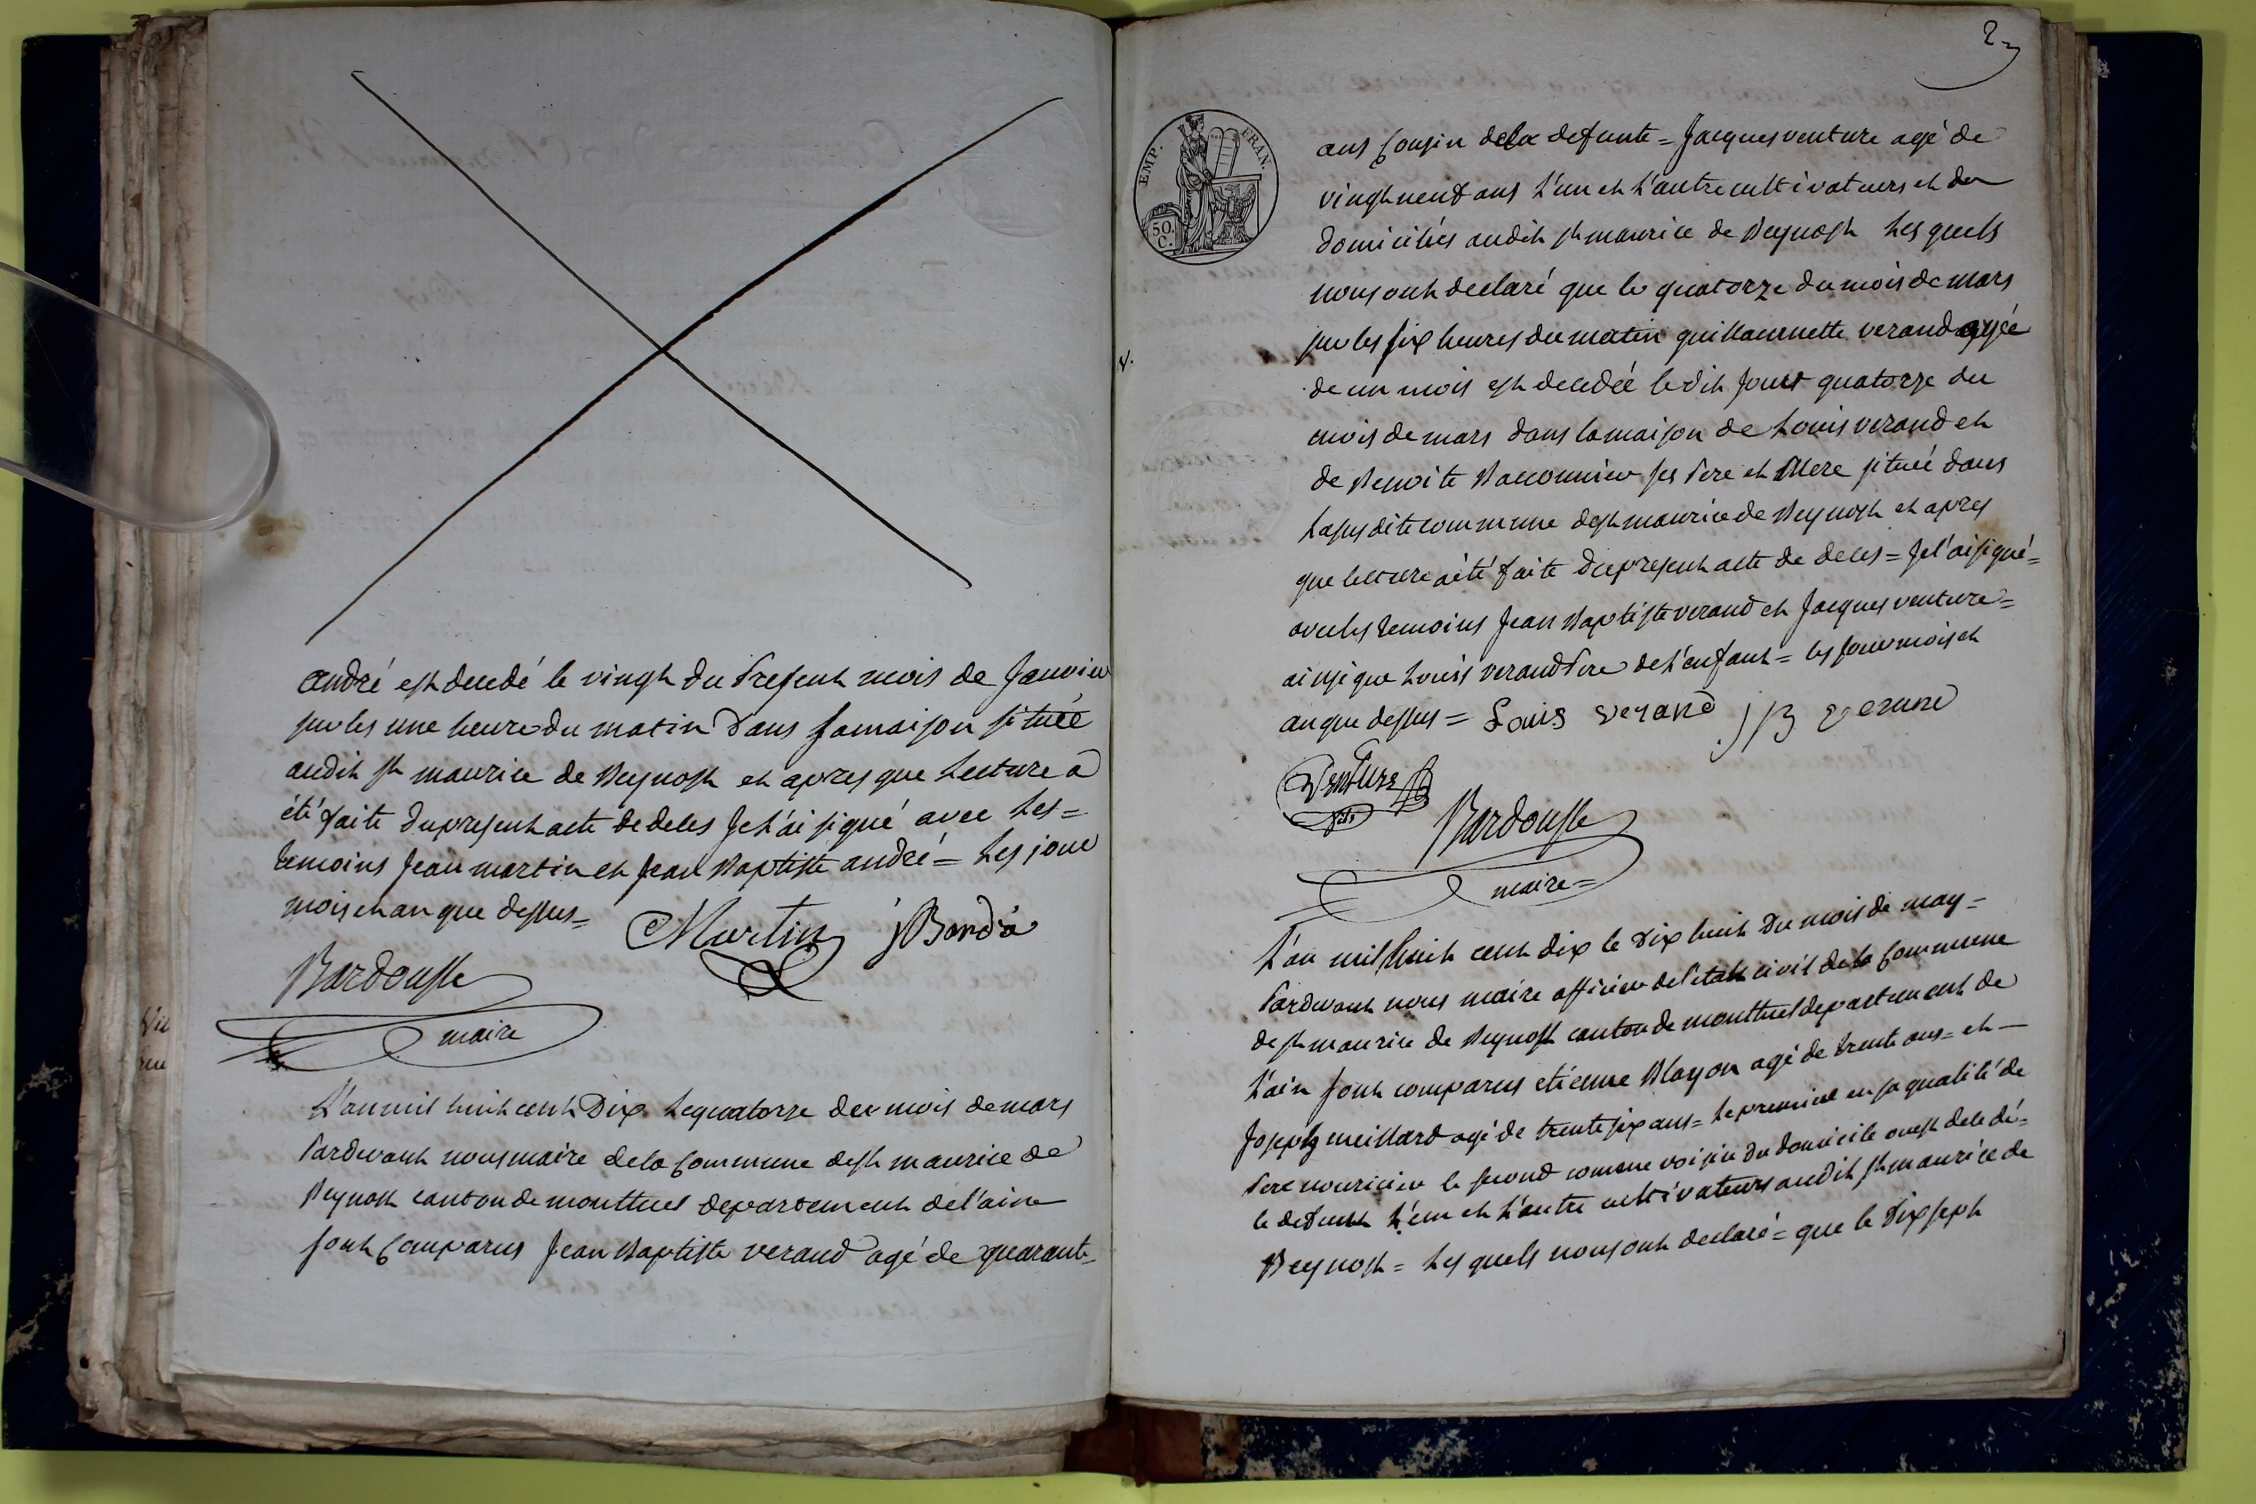 andré est decedé le vingt du Present mois de Janvier
sur les une heure du matin dans sa maison située
audit st maurice de Beynost et apres que Lecture a
été faite du present acte de deces Je l'ai signé avec Les =
temoins Jean martin et Jean Baptiste andré = Les jour
mois et an que dessus =
Martin jBandé
Bardousse
maire
L'an mil huit cent Dix Le quatorze du mois de mars
Pardevant nous maire de la Commune de st maurice de
Beynost canton de montluel departement de l'ain
sont Comparus Jean Baptiste verand agé de quarante
2
EMP. FRAN.
50.
C.
ans Cousin de la defunte = Jacques venture agé de
vingt neuf ans L'un et L'autre cultivateurs et de
domiciliés audit st maurice de Beynost Les quels
nous ont declaré que le quatorze du mois de mars
sur les six heures du matin guillaumette verand agée
v.
de un mois est decedée le dit Jour quatorze du
mois de mars dans la maison de Louis verand et
de Benoite Baconnier ses Pere et Mere située dans
La susdite commune de st maurice de Beynost et apres
que lecture a été faite du present acte de deces = Je l'ai signé =
avec les temoins Jean Baptiste verand et Jacques venture =
ainsi que Louis verand Pere de L'enfant = les jour mois et
an que dessus = Louis verand JB verand
Venture
Bardousse
maire =
L'an mil huit cent dix le Dix huit Du mois de may =
Pardevant nous maire officier de l'etat civil de la Commune
de st maurice de Beynost canton de montluel departement de
L'ain sont comparus etienne Blayon agé de trente ans = et —
Joseph meillard agé de trente six ans = Le premier en sa qualité de
Pere nouricier le second comme voisin du domicile ou est decedé =
le defunt L'un et L'autre cultivateurs audit st maurice de
Beynost = Les quels nous ont declaré = que le Dix sept